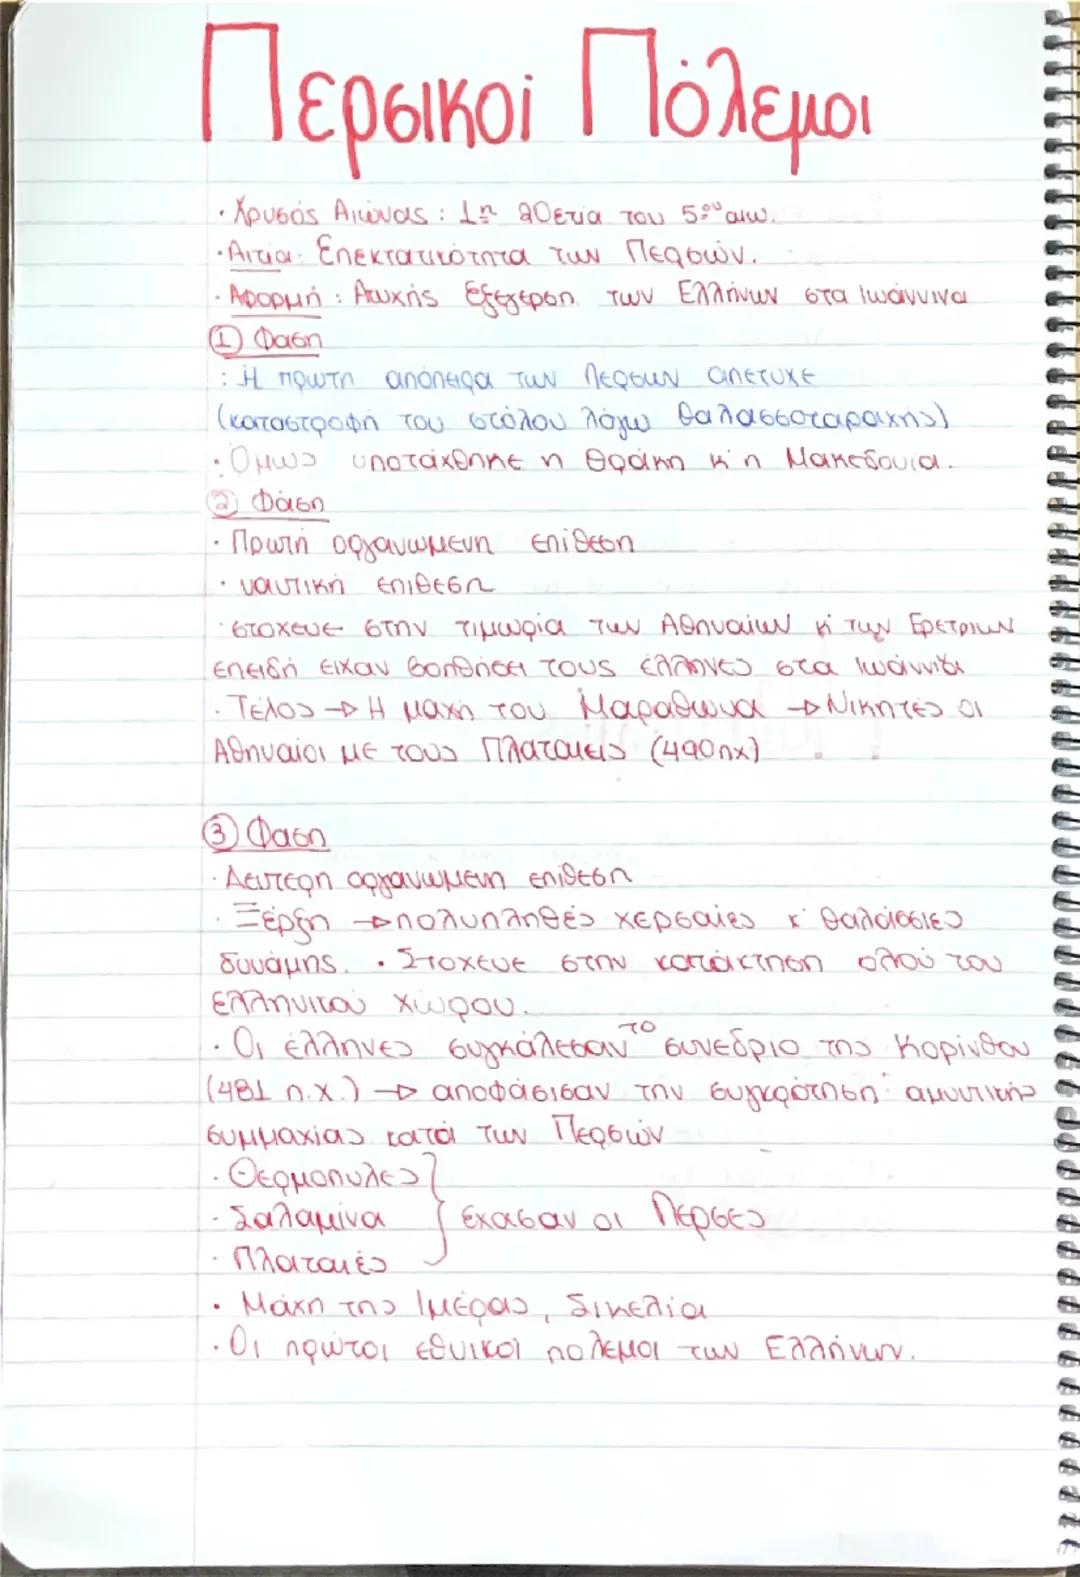 Περσικοί Πόλεμοι
· Χρυσός Αιώνας : 1η 20ετία του 5ου αιω.
· Αιτία: Επεκτατικότητα των Περσών.
· Αφορμή : Ατυχής εξέγερση των Ελλήνων στα Ιωάννινα
① Φαση
: Η πρωτη απόπειρα των Περσων απετυχε
(καταστροφή του στόλου λόγω θαλασσοταραχης)
· Όμως υποτάχθηκε η Θράκη κ' η Μακεδονία.
② Φάση
· Πρωτη οργανωμενη επίθεση
· ναυτικη επιθεση
· στοχευε στην τιμωρία των Αθηναίων κ' των Ερετριων
επειδή ειχαν βοηθήσει τους έλληνες στα Ιωάννινα
· Τέλος → Η μαχη του Μαραθωνα → Νικητές οι
Αθηναίοι με τους Πλαταιείς (490πχ)
③ Φαση
· Δευτερη οργανωμενη επιθεση
· Ξέρξη → πολυπληθές χερσαίες κ' θαλάσσιες
δυνάμης. · Στοχευε στην κατάκτηση ολού του
ελληνικού χώρου.
· Οι έλληνες συγκάλεσαν το συνεδριο της Κορίνθου
(481 π.χ.) → αποφάσισαν την συγκρότηση αμυντικής
συμμαχίας κατά των Περσών
· Θερμοπυλες
· Σαλαμίνα } έχασαν οι Πέρσες
· Πλαταιές
· Μάχη της Ιμέρας, Σικελία
· Οι πρώτοι εθνικοί πολεμοι των Ελλήνων.